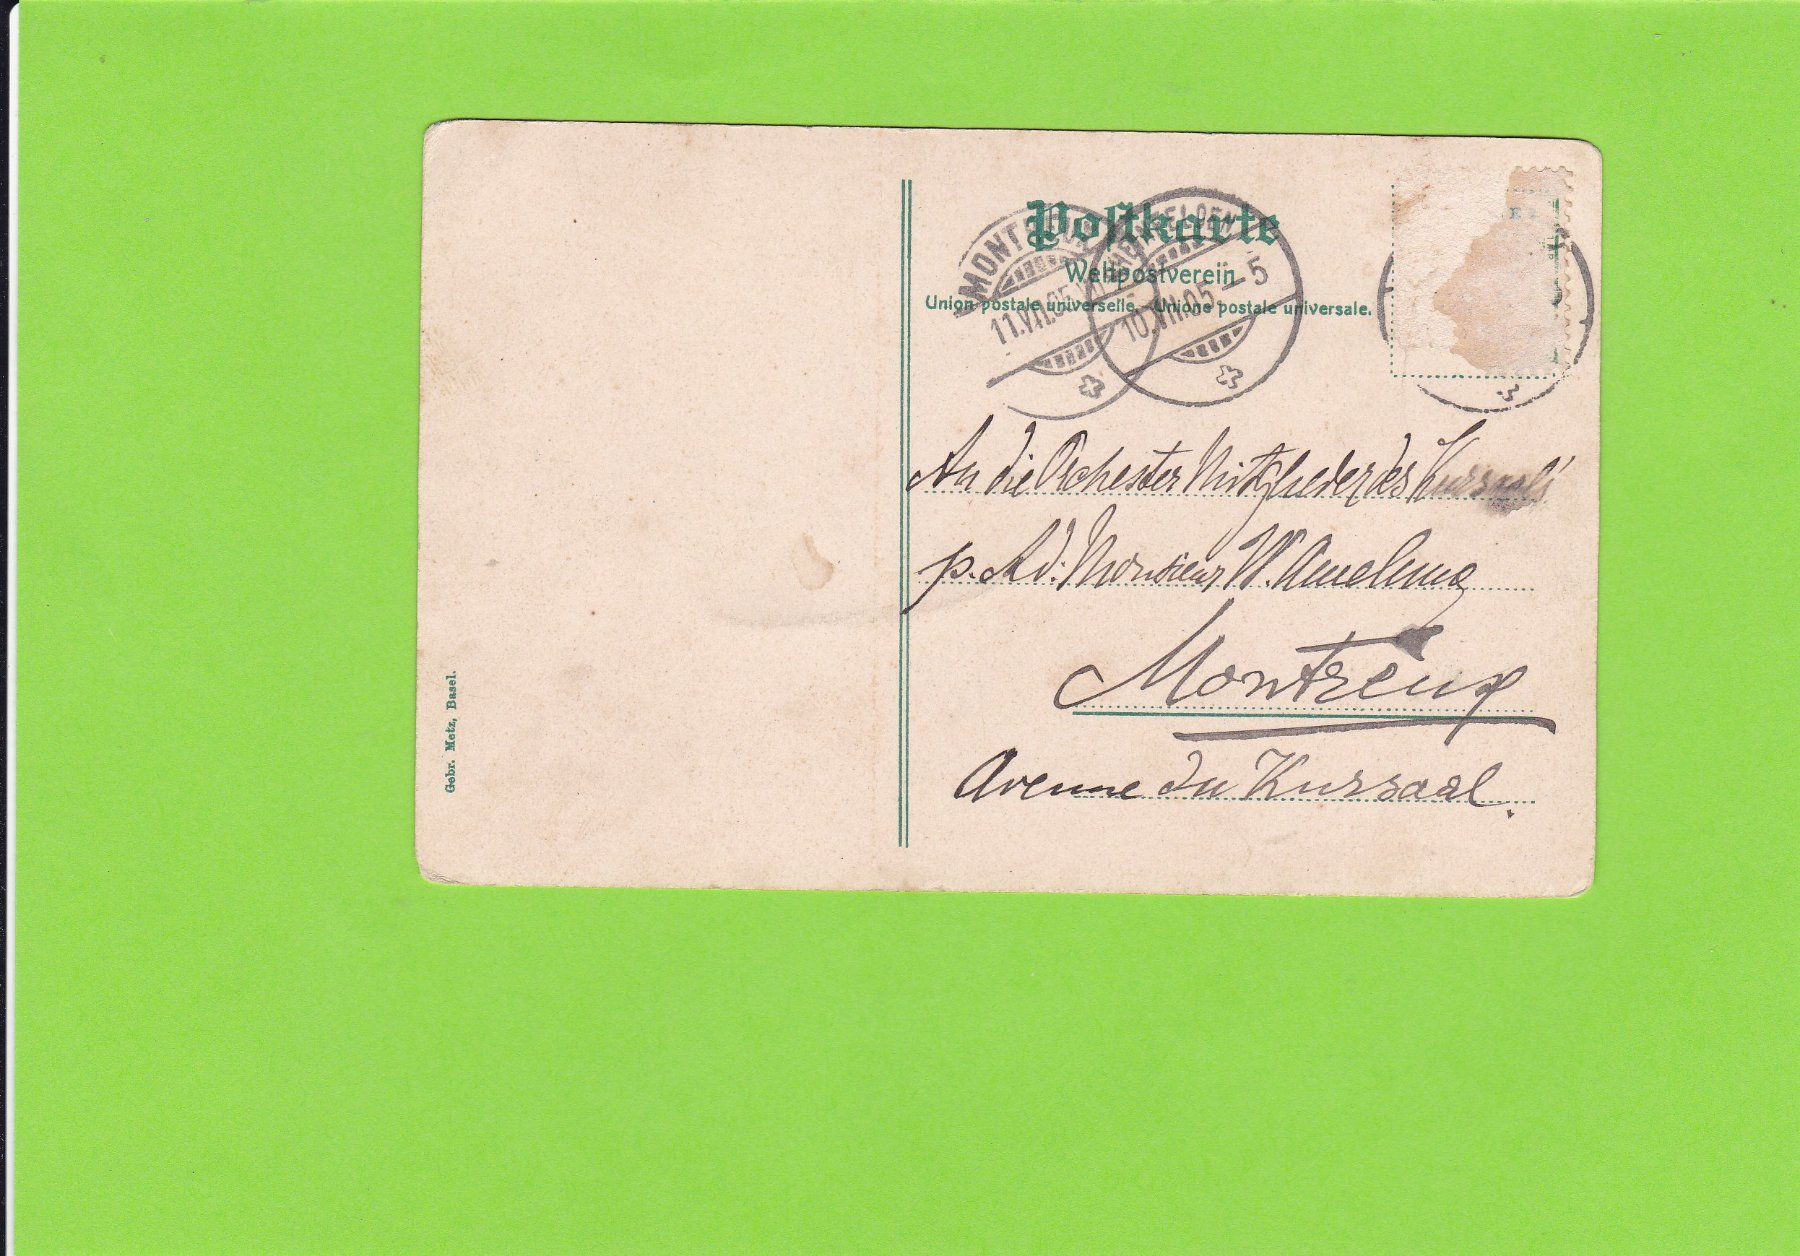 Postkarte
Weltpostverein
Union postale universelle. Unione postale universale.
MONTREUX
11.VII.05
RHEINFELDEN
10.VII.05 - 5
An die Orchester Mitglieder des Kursaals
p. Ad. Monsieur W. Amelung
Montreux
Avenue du Kursaal.
Gebr. Metz, Basel.